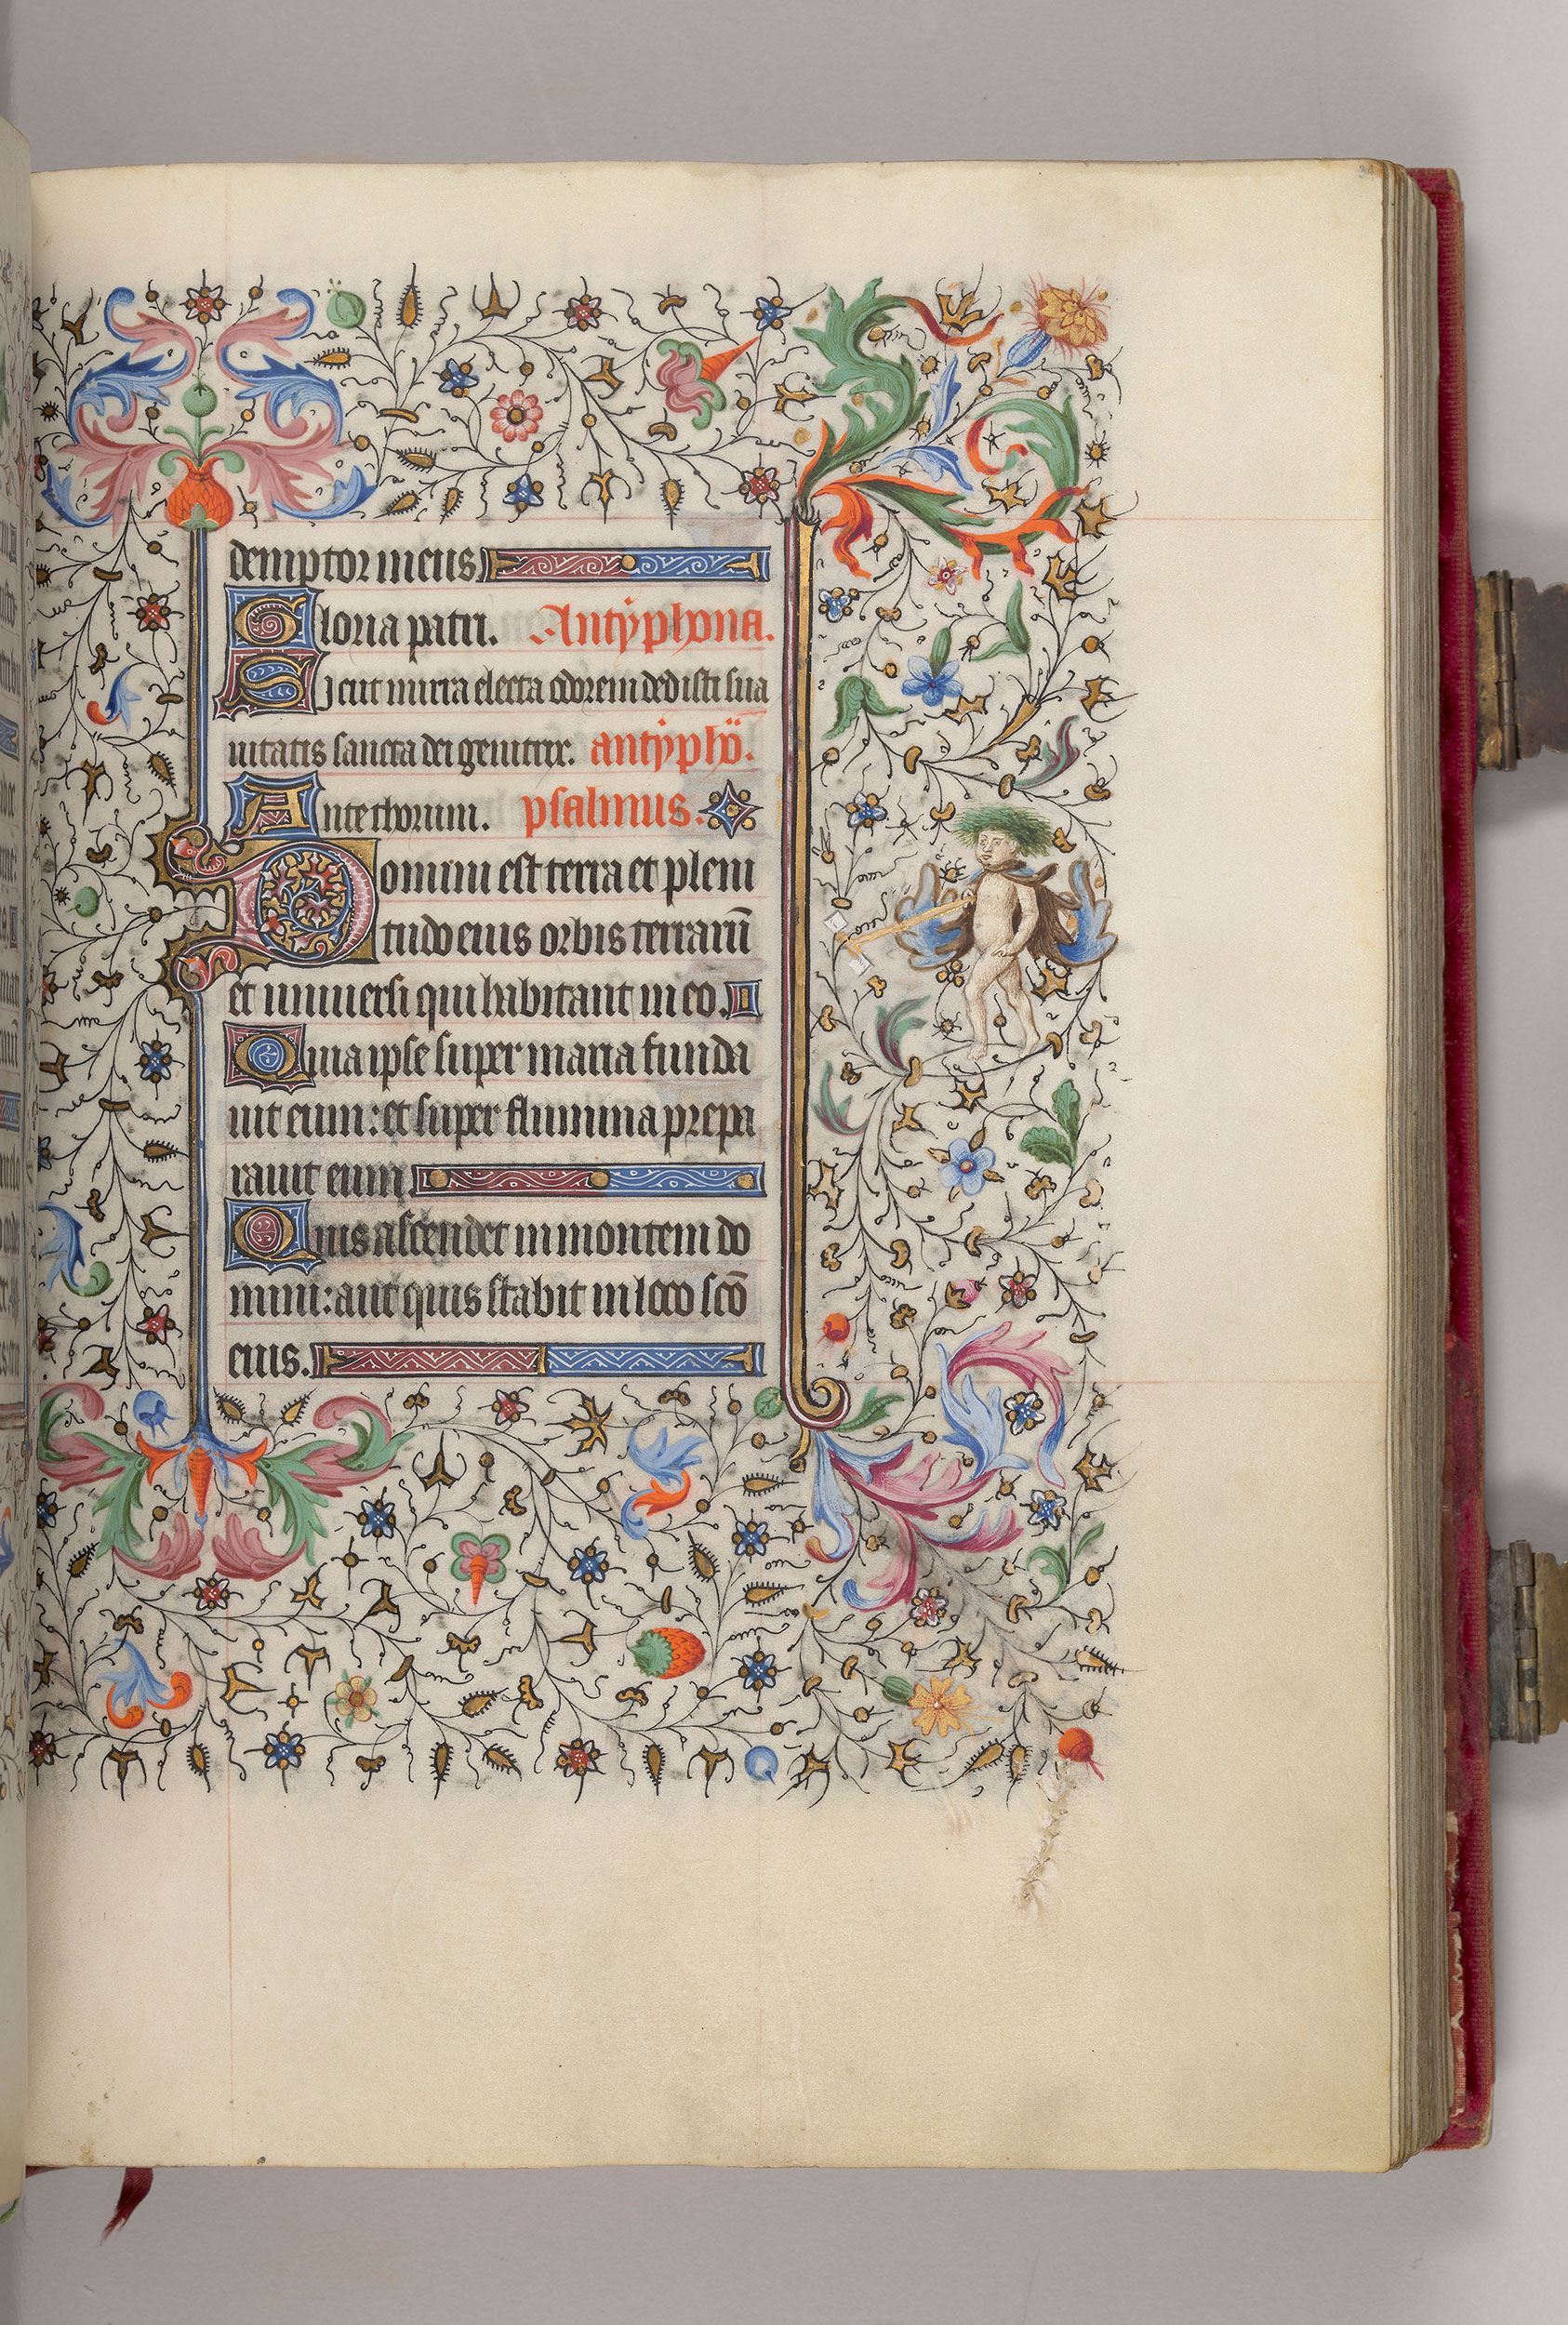 demptor meus.
Gloria patri. Antyphona.
Sicut mirra electa odorem dedisti sua
uitatis sancta dei genitrix. antypho.
Ante thorum. psalmus.
Domini est terra et pleni
tudo eius orbis terrarū
et uniuersi qui habitant in eo.
Quia ipse super maria funda
uit eum: et super flumina prepa
rauit eum
Quis ascendet in montem do
mini: aut quis stabit in loco scō
eius.